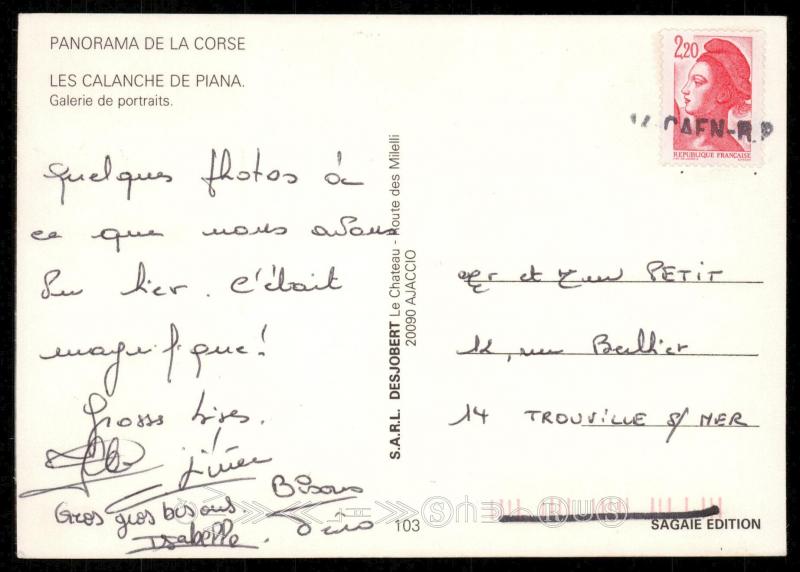 PANORAMA DE LA CORSE
LES CALANCHE DE PIANA.
Galerie de portraits.
2,20
CAEN-R.P
REPUBLIQUE FRANÇAISE
Quelques photos de
ce que nous avons
vu hier. C'était
magnifique!
Grosses bises.
Gros gros bisous.
Isabelle.
Bisous
S.A.R.L. DESJOBERT Le Chateau - Route des Milelli
20090 AJACCIO
et PETIT
12, rue
14 TROUVILLE S/ MER
103
SAGAIE EDITION